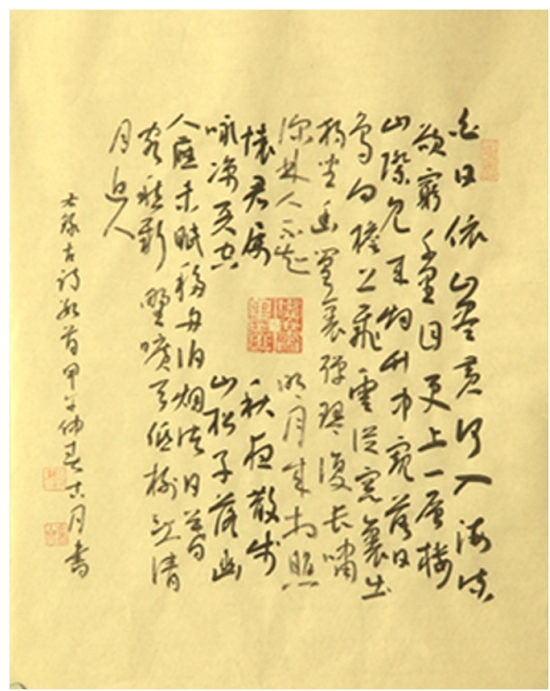 白日依山尽黄河入海流
欲穷千里目更上一层楼
山际见来烟竹中窥落日
鸟向檐上飞云从窗里出
独坐幽篁里弹琴复长啸
深林人不知 明月来相照
怀君属 秋夜散步
咏凉天空 山松子落幽
人应未眠移舟泊烟渚日暮
客愁新野旷天低树江清
月近人
右录古诗数首甲午仲春古月书